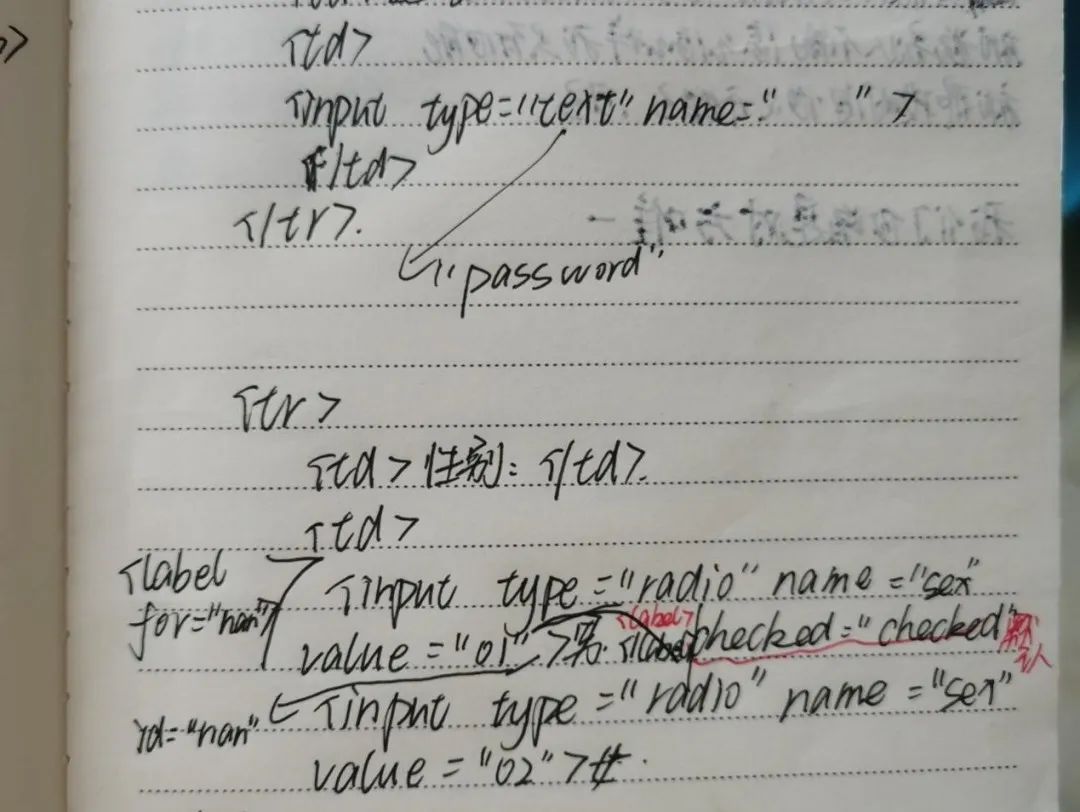 <td>
<input type="text" name="      ">
</td>
</tr>.
"password"
<tr>
<td>性别: </td>.
<td>
<label
for="nan"
<input type="radio" name="sex"
<label>
value="01">男. <label checked="checked" 默认
id="nan"
<input type="radio" name="sex"
value="02">女.